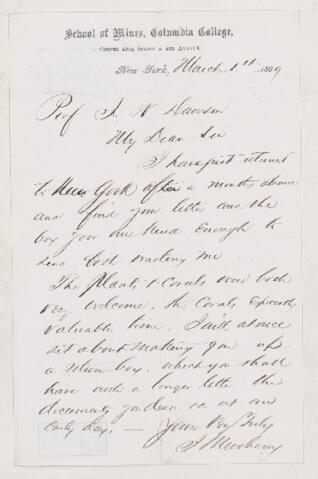 School of Mines, Columbia College,
Corner 49th Street & 4th Avenue,
New York, March 1st 1869
Prof J. W Dawson
My Dear Sir
I have just returned
to New York after a months absence
and find your letter and the
box you were kind enough to
send both waiting me
The plants & corals were both
very welcome, the corals especially
valuable to me. I will at once
set about making you up
a return box, which you shall
have with a longer letter the
documents you desire at an
early day. — Yours Very Truly
J S Newberry